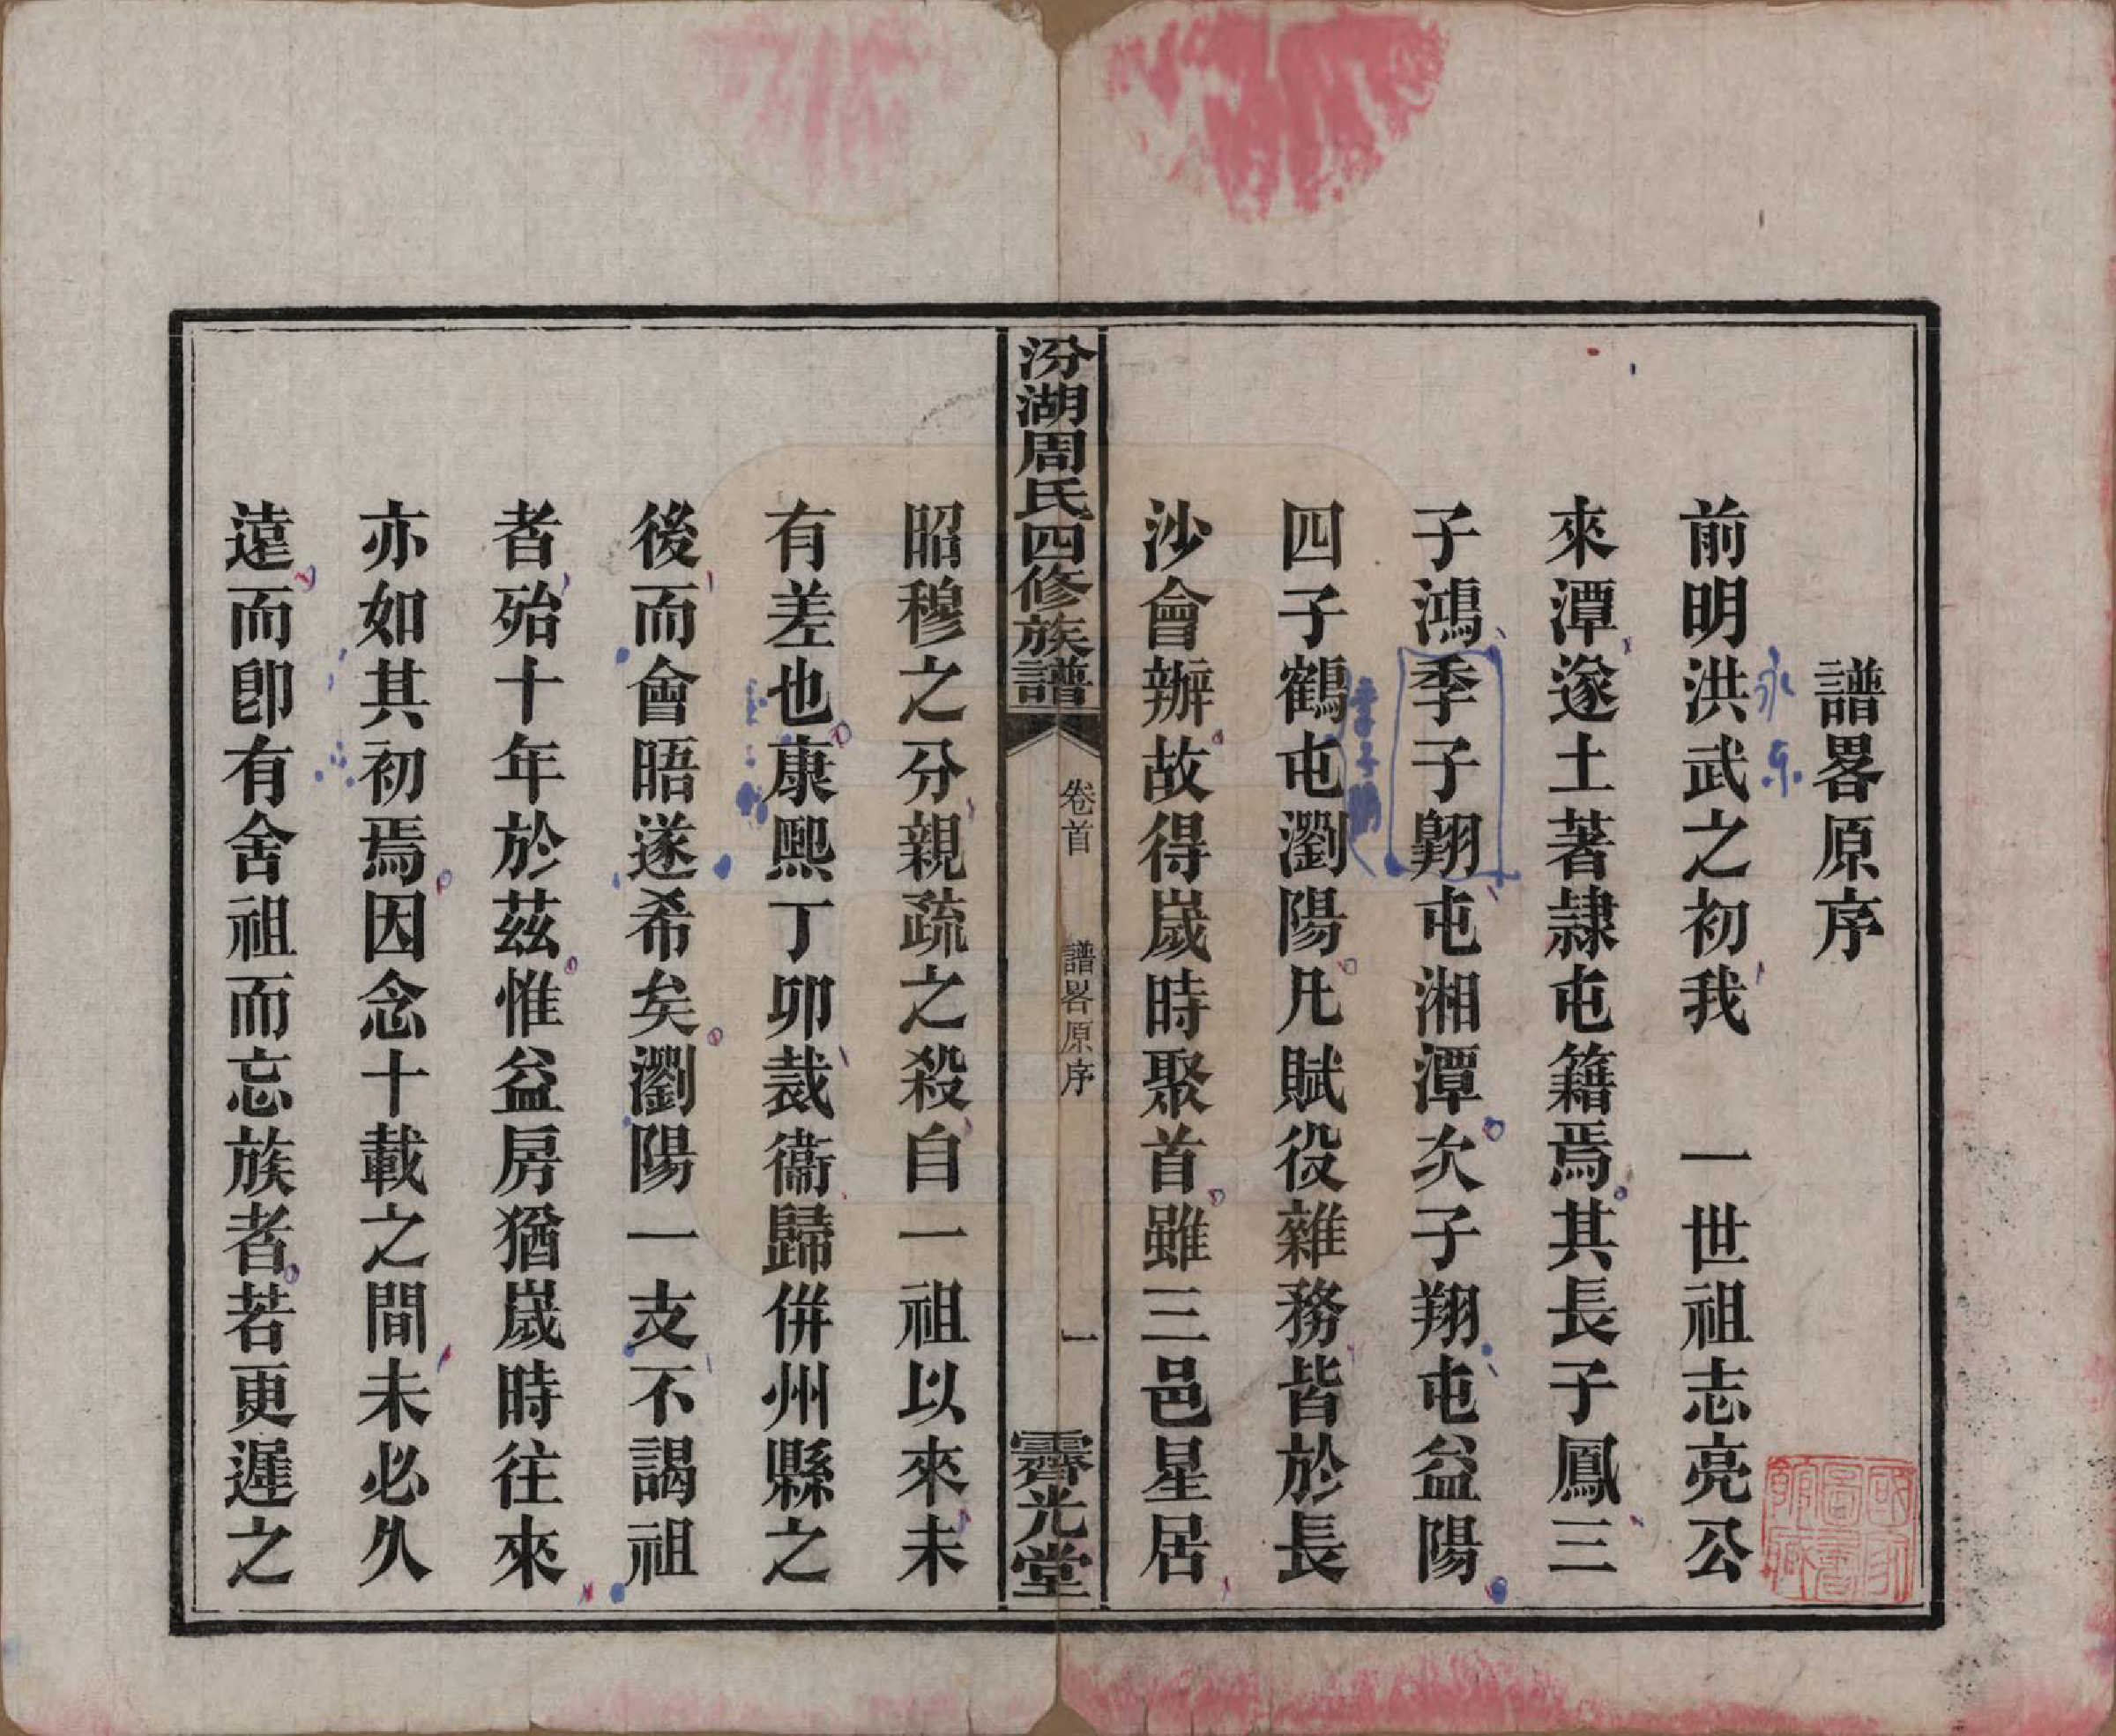 譜畧原序
前明洪武之初我　一世祖志亮公
永樂
來潭遂土著隷屯籍焉其長子鳳三
子鴻季子翺屯湘潭次子翔屯益陽
四子鶴屯瀏陽凡賦役雜務皆於長
沙會辦故得歲時聚首雖三邑星居
汾湖周氏四修族譜
卷首　譜畧原序　一
霽光堂
昭穆之分親疏之殺自一祖以來未
有差也康熙丁卯裁衞歸併州縣之
後而會晤遂希矣瀏陽一支不謁祖
者殆十年於茲惟益房猶歲時往來
亦如其初焉因念十載之間未必久
遠而卽有舍祖而忘族者若更遲之
國家圖書館藏